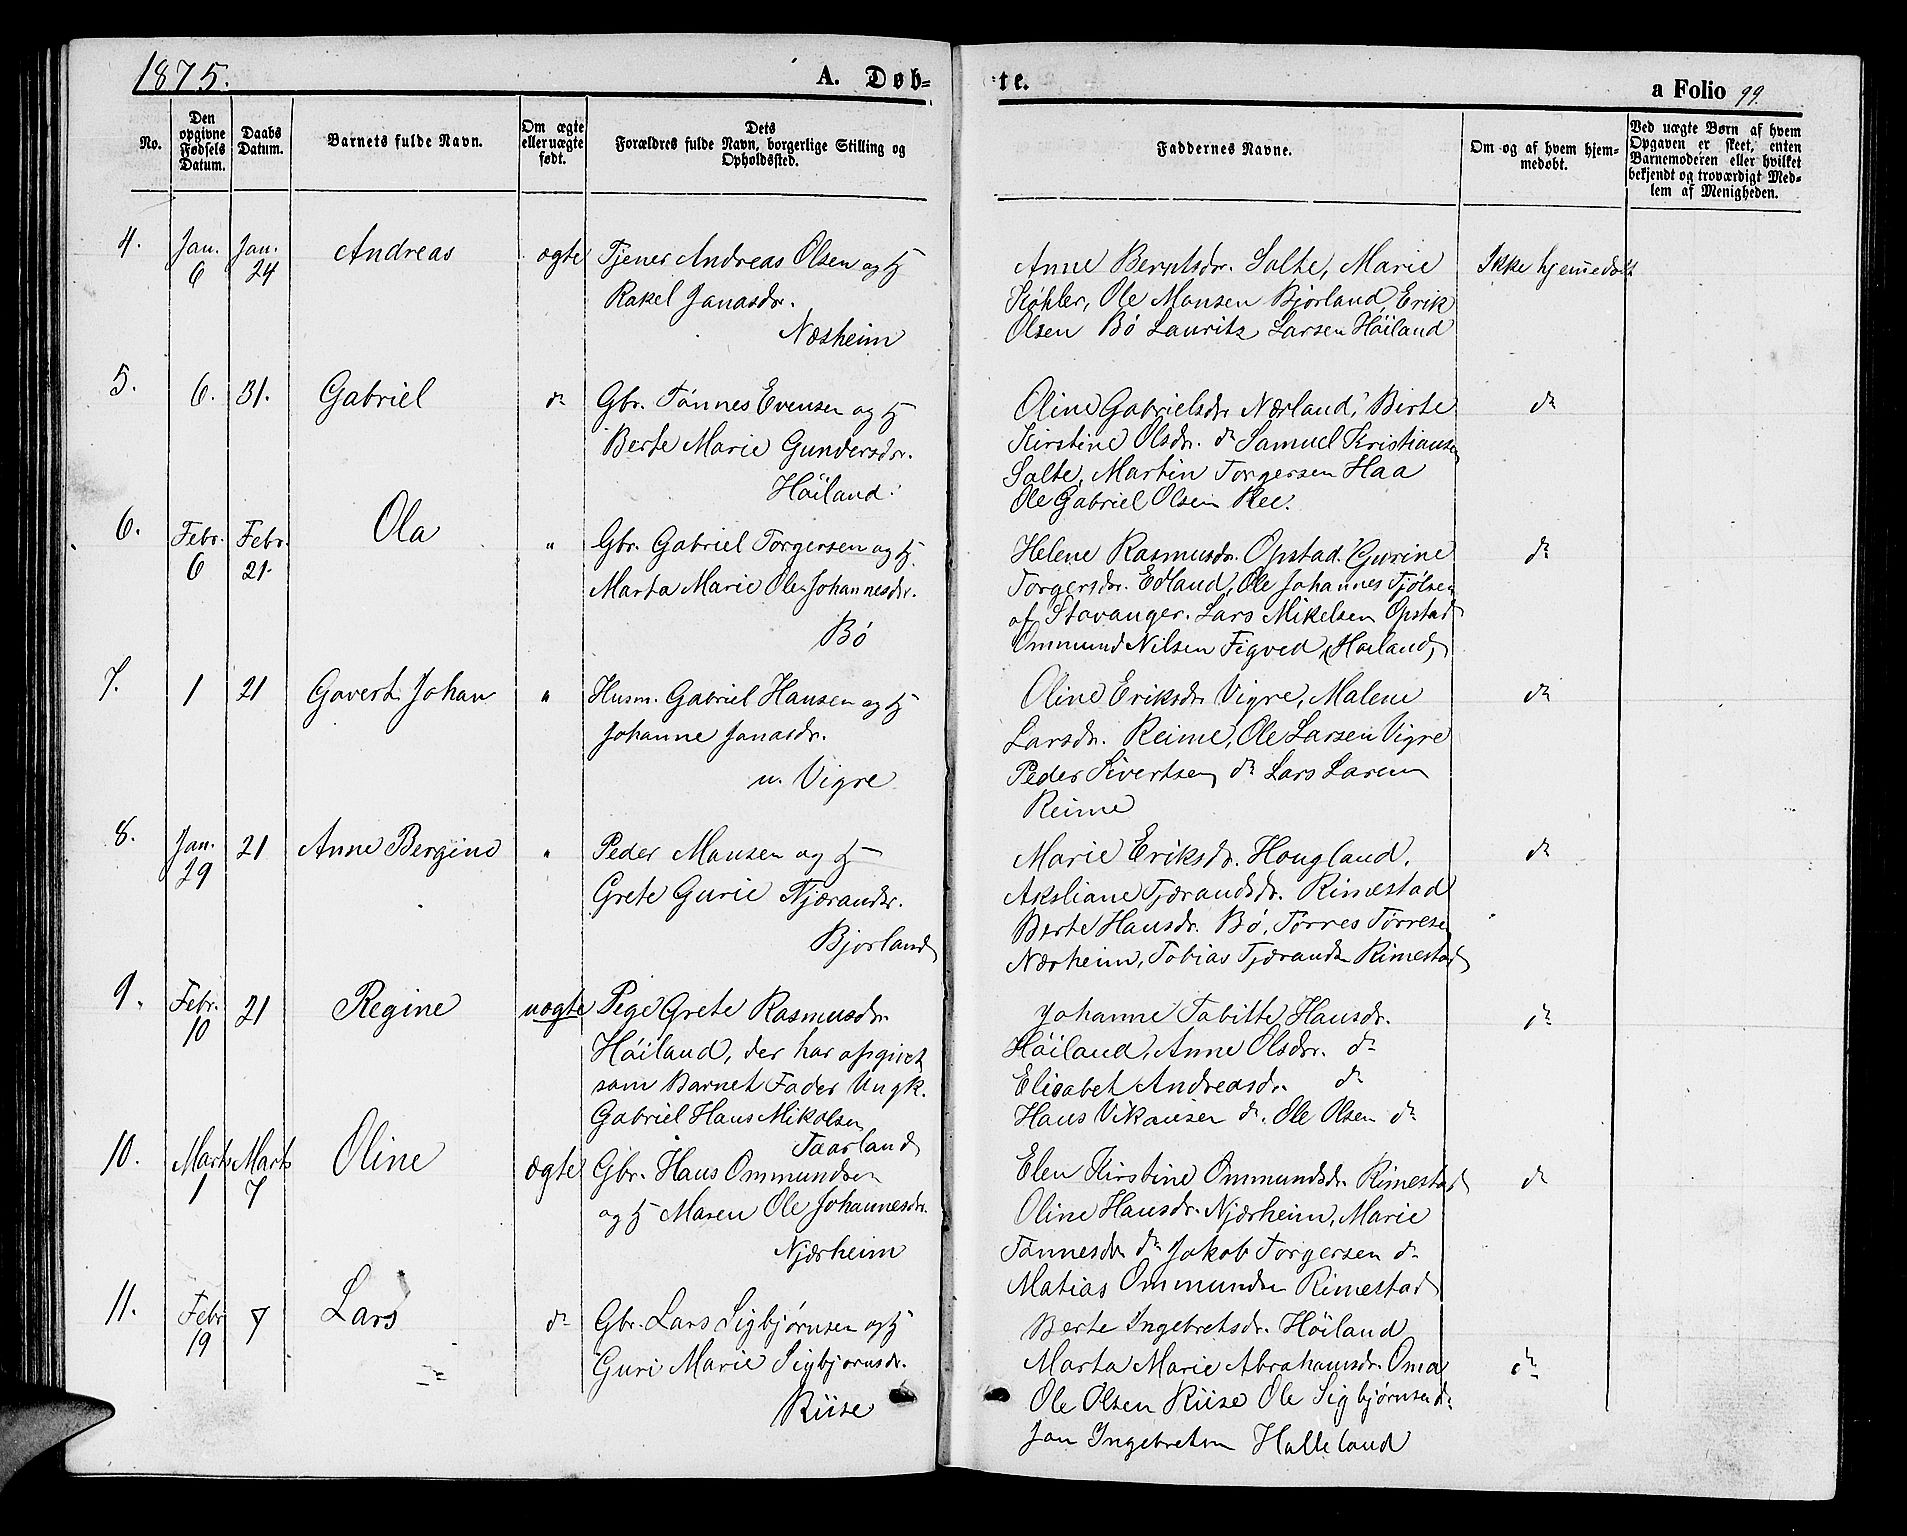 1875.
A. Døb-
te.
a Folio 99.
No.
Den opgivne Fødsels Datum.
Daabs Datum.
Barnets fulde Navn.
Om ægte eller uægte født.
Dets Forældres fulde Navn, borgerlige Stilling og Opholdssted.
Faddernes Navne.
Om og af hvem hjemmedøbt.
Ved uægte Børn af hvem Opgaven er skeet, enten Barnemoderen eller hvilket bekjendt og troværdigt Medlem af Menigheden.
4. Jan. 6 Jan. 24 Andreas ægte Tjener Andreas Olsen og H
Rakel Jonasdr.
Næsheim
Anne Berntsdr. Salte, Marie
Køhler, Ole Monsen Bjorland, Erik
Olsen Bö Lauritz Larsen Höiland
Ikke hjemedöbt
5. 6. 31. Gabriel do Gbr. Tönnes Evensen og H
Berte Marie Gundersdr.
Höiland.
Oline Gabrielsdr Nærland, Birte
Kirstine Olsdr. do Samuel Kristiansen
Salte, Martin Torgersen Haa
Ole Gabriel Olsen Ree.
do
6. Febr. 6 Febr. 21. Ola " Gbr. Gabriel Torgersen og H
Marta Marie Ole Johannesdr.
Bö
Helene Rasmusdr. Opstad. Gurine
Torgersdr. Edland, Ole Johannes Tjölsen
af Stavanger. Lars Mikelsen Opstad
Ommund Nilsen Figved, (Höiland)
do
7. 1 21 Govert Johan " Husm. Gabriel Hansen og H
Johanne Jonasdr.
u. Vigre
Oline Eriksdr Vigre, Malene
Larsdr. Reime, Ole Larsen Vigre
Peder Sivertsen do Lars Larsen
Reime
do
8. Jan. 29 21 Anne Bergine " Peder Monsen og H
Grete Gurie Tjærandsr.
Bjorland
Marie Eriksdr. Hougland.
Aksliane Tjærandsdr. Rimestad
Berte Hansdr. Bö, Törres Törresen
Nærheim, Tobias Tjærands Rimestad
do
9. Febr. 10 21 Regine uægte Pige Grete Rasmusdr.
Höiland, der har opgivet
som Barnet Fader Ungk.
Gabriel Hans Mikalsen
Taarland
Johanne Tobitte Hansdr.
Höiland, Anne Olsdr. do
Elisabet Andreasdr. do
Hans Vikansen do. Ole Olsen do
do
10. Marts 1 Marts 7 Oline ægte Gbr. Hans Ommundsen
og H Maren Ole Johannesdr.
Njærheim
Elen Kirstine Ommundsdr. Rimestad
Oline Hansdr. Njærheim, Marie
Tönnesdr do Jakob Torgersen do
Matias Ommundsen Rimestad
do
11. Febr 19 7 Lars do Gbr. Lars Sigbjørnsen og H
Guri Marie Sigbjørnsdr.
Riise
Berte Ingebretsdr. Höiland
Marta Marie Abrahamsdr. Oma
Ole Olsen Riise Ole Sigbjørnsen do
Jon Ingebretsen Halleland
do